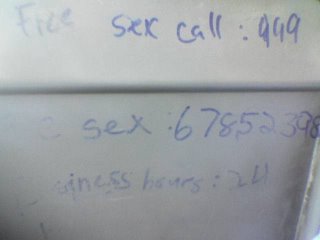 Free sex call : 999
sex : 67852398
hours : 24